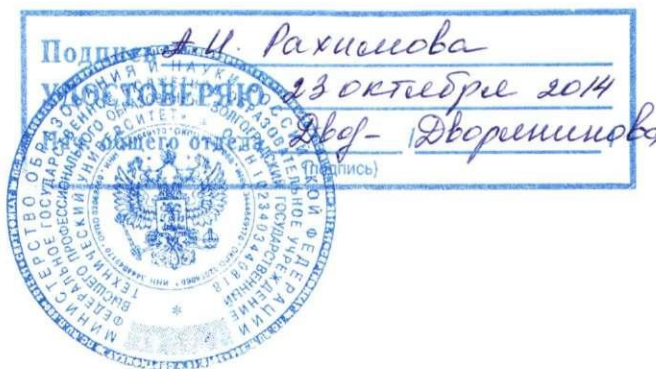 Подпись А.И. Рахимова
УДОСТОВЕРЯЮ 23 октября 2014
Нач. общего отдела Двор- Дворянинова
(подпись)
МИНИСТЕРСТВО ОБРАЗОВАНИЯ И НАУКИ РОССИЙСКОЙ ФЕДЕРАЦИИ
ФЕДЕРАЛЬНОЕ ГОСУДАРСТВЕННОЕ ОБРАЗОВАТЕЛЬНОЕ УЧРЕЖДЕНИЕ
ВЫСШЕГО ПРОФЕССИОНАЛЬНОГО ВОЛГОГРАДСКИЙ ГОСУДАРСТВЕННЫЙ
ТЕХНИЧЕСКИЙ УНИВЕРСИТЕТ